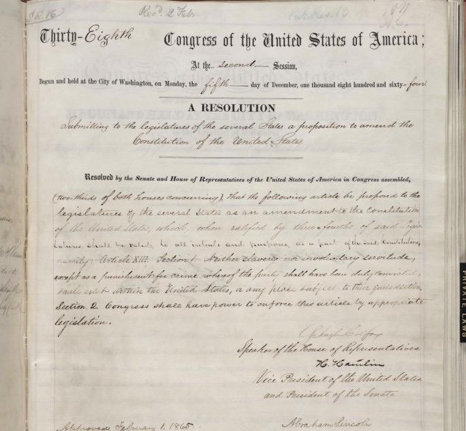 Thirty-Eighth Congress of the United States of America;
At the second Session,
Begun and held at the City of Washington, on Monday, the fifth day of December, one thousand eight hundred and sixty-four
A RESOLUTION
Submitting to the legislatures of the several States a proposition to amend the
Constitution of the United States.
Resolved by the Senate and House of Representatives of the United States of America in Congress assembled,
(two-thirds of both houses concurring), that the following article be proposed to the
legislatures of the several States as an amendment to the Constitution
of the United States, which, when ratified by three-fourths of said legis-
latures shall be valid, to all intents and purposes, as a part of the said Constitution,
namely: Article XIII. Section 1. Neither slavery nor involuntary servitude,
except as a punishment for crime whereof the party shall have been duly convicted,
shall exist within the United States, or any place subject to their jurisdiction.
Section 2. Congress shall have power to enforce this article by appropriate
legislation.
Schuyler Colfax
Speaker of the House of Representatives
H. Hamlin
Vice President of the United States
and President of the Senate
Approved, February 1, 1865.
Abraham Lincoln
PRIVATE LAWS